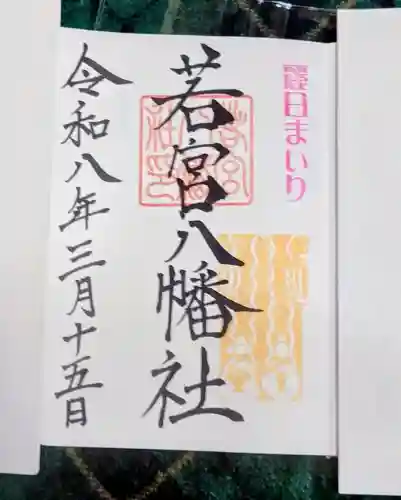 縁日まいり
若宮八幡社
令和八年三月十五日